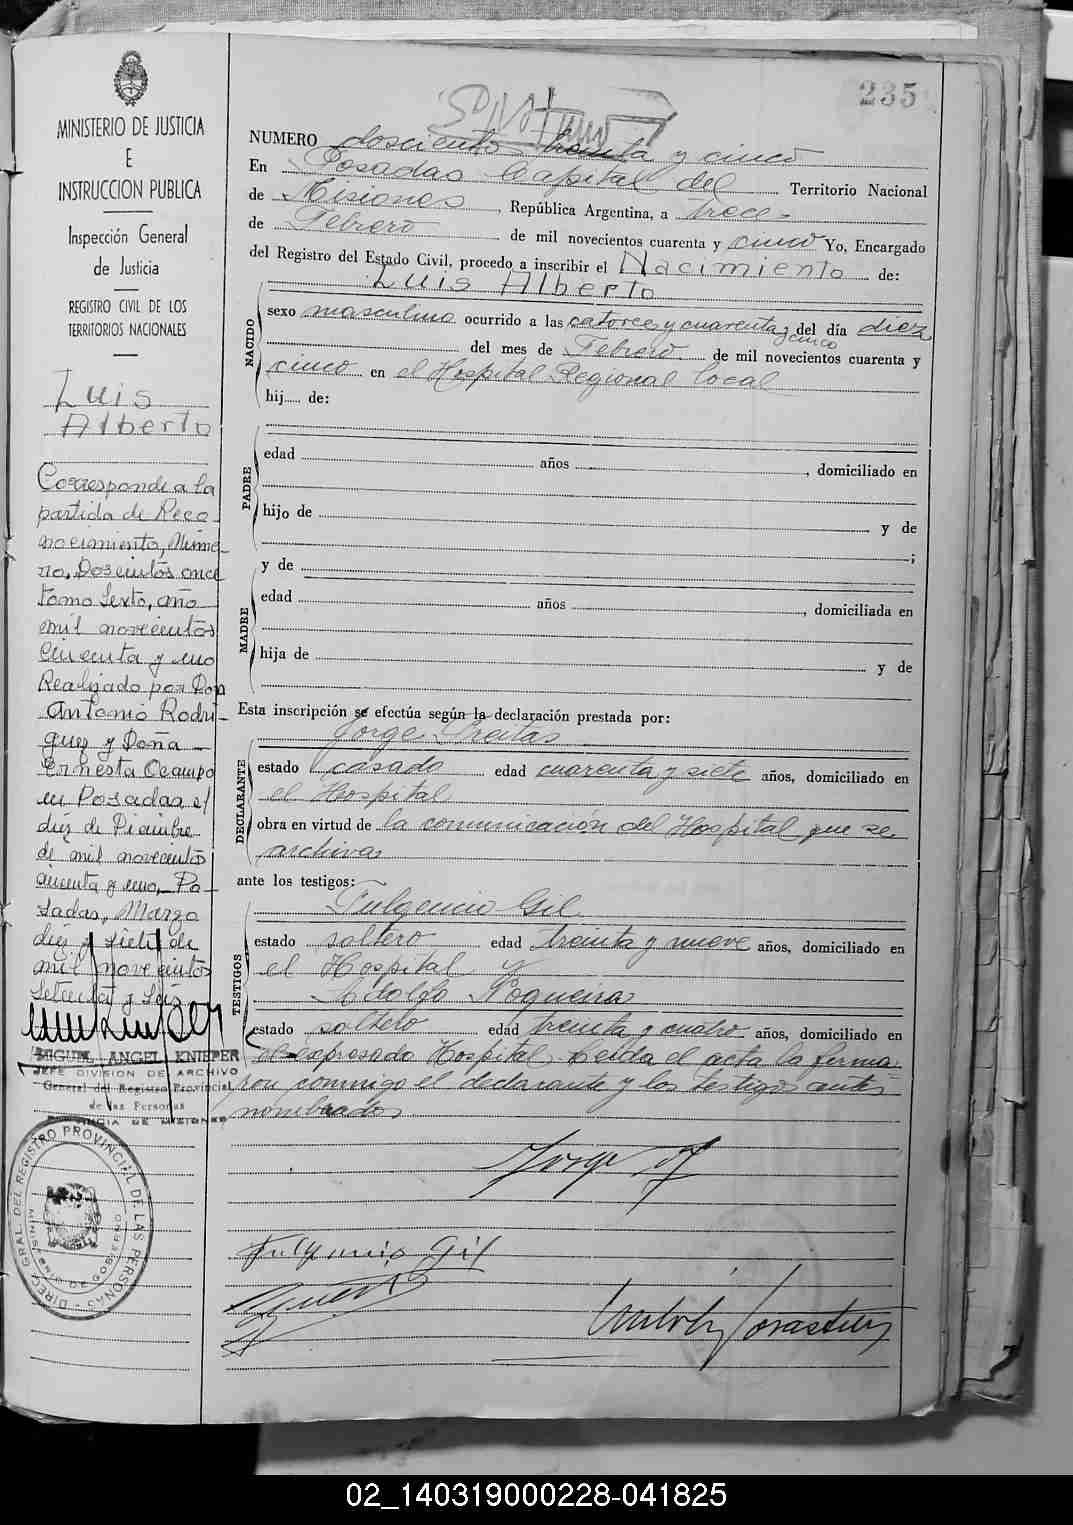 235
MINISTERIO DE JUSTICIA
E
INSTRUCCION PUBLICA
Inspección General
de Justicia
REGISTRO CIVIL DE LOS
TERRITORIOS NACIONALES
Luis
Alberto
Corresponde a la
partida de Reco-
nocimiento, Núme-
ro, Doscientos once
tomo sexto, año
mil novecientos
Cincuenta y uno
Realizado por Don
Antonio Rodri-
guez y Doña
Ernesta Ocampo
en Posadas el
diez de Diciembre
de mil novecientos
cincuenta y uno, Po-
sadas, Marzo
diez y siete de
mil novecientos
setenta y seis
MIGUEL ANGEL KNIEPER
JEFE DIVISION DE ARCHIVO
General del Registro Provincial
de las Personas
PROVINCIA DE MISIONES
DIREC. GRAL. DEL REGISTRO PROVINCIAL DE LAS PERSONAS
MINISTERIO DE GOBIERNO
NUMERO doscientos treinta y cinco
En Posadas Capital del Territorio Nacional
de Misiones, República Argentina, a trece
de Febrero de mil novecientos cuarenta y cinco Yo, Encargado
del Registro del Estado Civil, procedo a inscribir el Nacimiento de:
Luis Alberto
NACIDO
sexo masculino ocurrido a las catorce y cuarenta y cinco del día diez
del mes de Febrero de mil novecientos cuarenta y
cinco en el Hospital Regional local
hij de:
PADRE
edad años , domiciliado en
hijo de y de
;
y de
MADRE
edad años , domiciliada en
hija de y de
Esta inscripción se efectúa según la declaración prestada por:
Jorge Freitas
DECLARANTE
estado casado edad cuarenta y siete años, domiciliado en
el Hospital
obra en virtud de la comunicación del Hospital que se
archiva
ante los testigos:
TESTIGOS
Fulgencio Gil
estado soltero edad treinta y nueve años, domiciliado en
el Hospital y
Adolfo Nogueira
estado soltero edad treinta y cuatro años, domiciliado en
el expresado Hospital. Leida el acta la firma-
ron conmigo el declarante y los testigos antes
nombrados
Jorge
Fulgencio Gil
02_140319000228-041825